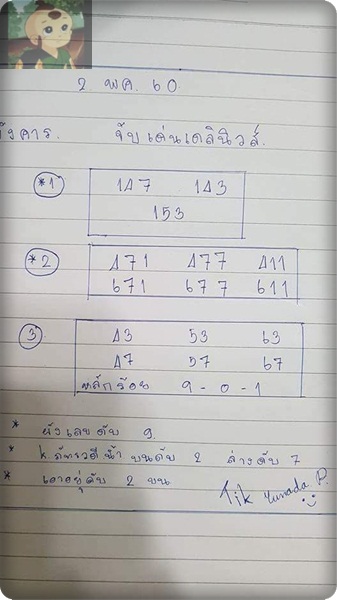 2 พ.ค. 60
อังคาร. จับเด่นเดลินิวส์.
*1 147 143
153
*2 471 477 411
671 677 611
3 43 53 63
47 57 67
หลักร้อย 9 - 0 - 1
* ผังเลขดับ 9
* k ภัทรวดีน้ำ บนดับ 2 ล่างดับ 7
* เดาอยู่ดับ 2 บน
Tik Yunada P.